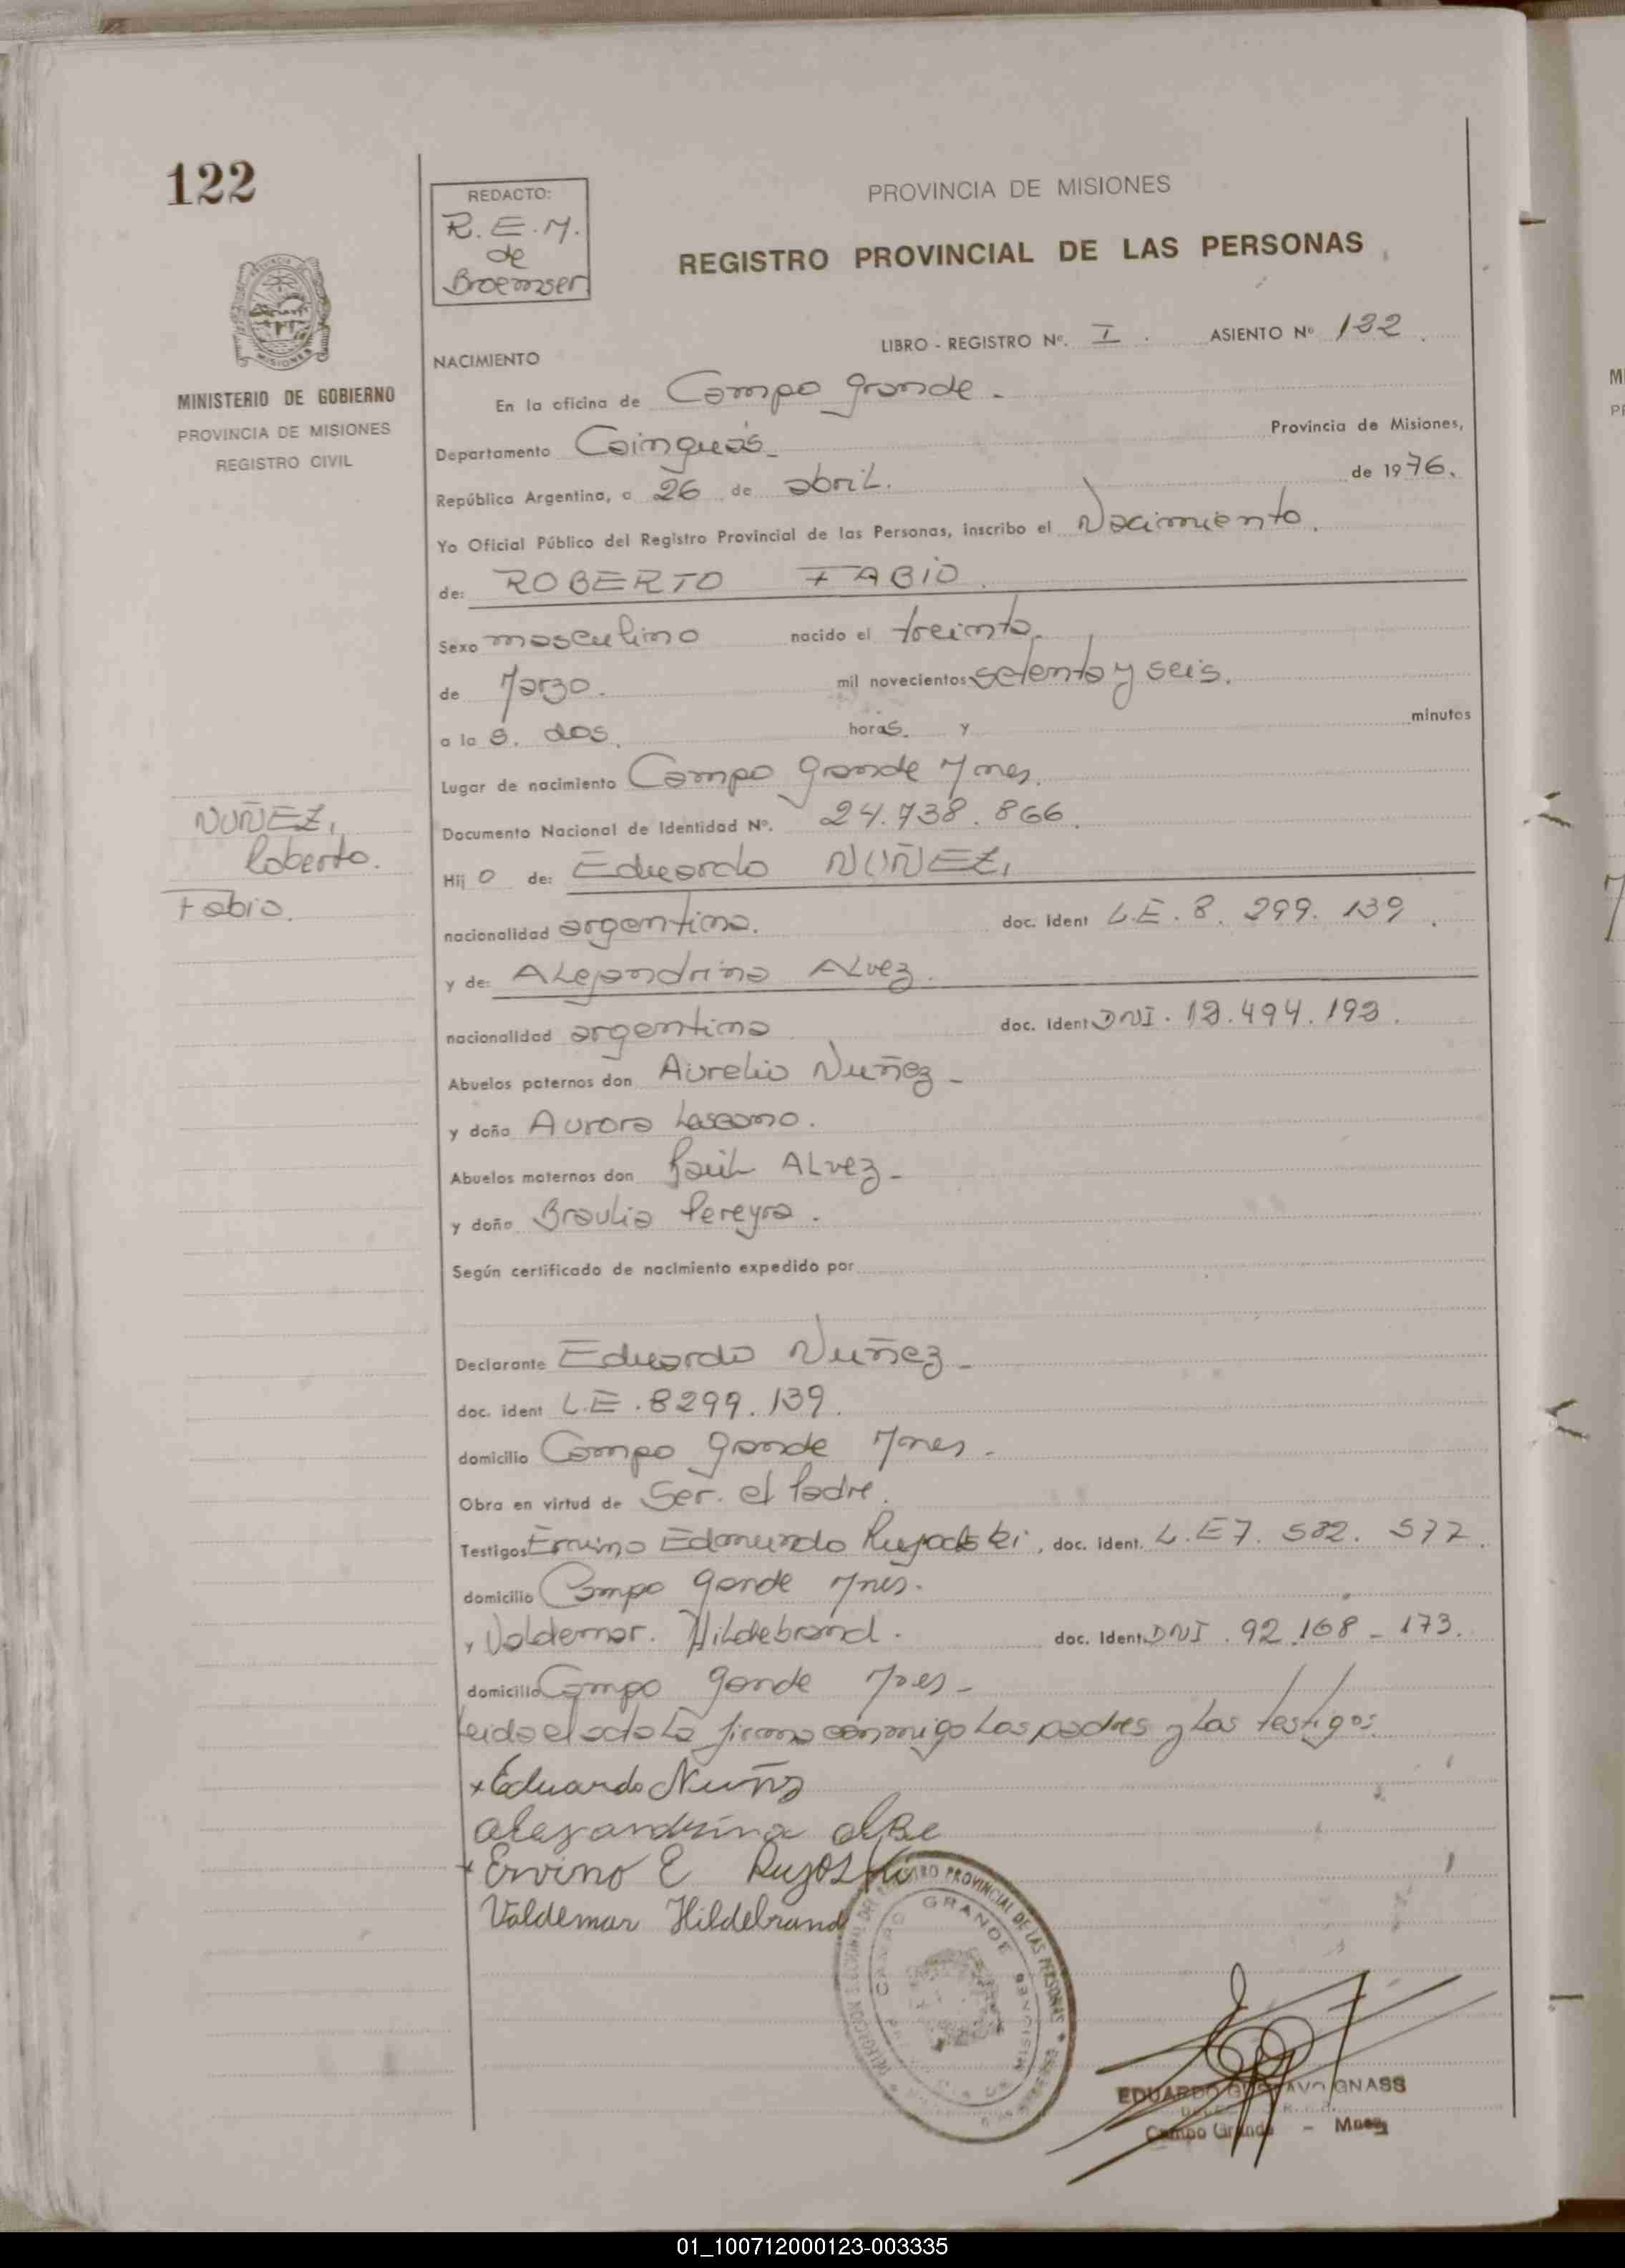 122
REDACTO:
R. E. M.
de
Broemser
PROVINCIA DE MISIONES
REGISTRO PROVINCIAL DE LAS PERSONAS
MINISTERIO DE GOBIERNO
PROVINCIA DE MISIONES
REGISTRO CIVIL
NACIMIENTO
LIBRO - REGISTRO Nº. I. ASIENTO Nº 122.
En la oficina de Campo Grande.
Departamento Cainguás Provincia de Misiones,
República Argentina, a 26 de abril. de 1976.
Yo Oficial Público del Registro Provincial de las Personas, inscribo el Nacimiento.
de: ROBERTO FABIO.
Sexo masculino nacido el treinta
de Marzo. mil novecientos setenta y seis.
a la s. dos. horas. y minutos
Lugar de nacimiento Campo Grande Mnes.
Documento Nacional de Identidad Nº. 24.738.866.
NUÑEZ,
Roberto.
Fabio.
Hij o de: Eduardo NUÑEZ,
nacionalidad argentina. doc. Ident L.E. 8.299.139.
y de: Alejandrina Alvez.
nacionalidad argentina doc. Ident DNI. 12.494.192.
Abuelos paternos don Aurelio Nuñez-
y doña Aurora Lescano.
Abuelos maternos don Raúl Alvez-
y doña Braulia Pereyra.
Según certificado de nacimiento expedido por
Declarante Eduardo Nuñez-
doc. ident L.E. 8299.139.
domicilio Campo Grande Mnes.
Obra en virtud de Ser. el Padre.
Testigos Ervino Edmundo doc. ident. L.E 7.582.577.
domicilio Campo Gande Mnes.
y Valdemar. Hildebrand. doc. Ident DNI. 92.168-173.
domicilio Campo Gande Mnes-
Leida el acta La firma conmigo Los padres y Los testigos.
x Eduardo Nuñz
alejandrina
+ Ervino E
Valdemar Hildebrand
DELEGACION SECCIONAL DEL REGISTRO PROVINCIAL DE LAS PERSONAS
CAMPO GRANDE
MISIONES
EDUARDO GUSTAVO GNASS
Campo Grande - Mnes
01_100712000123-003335